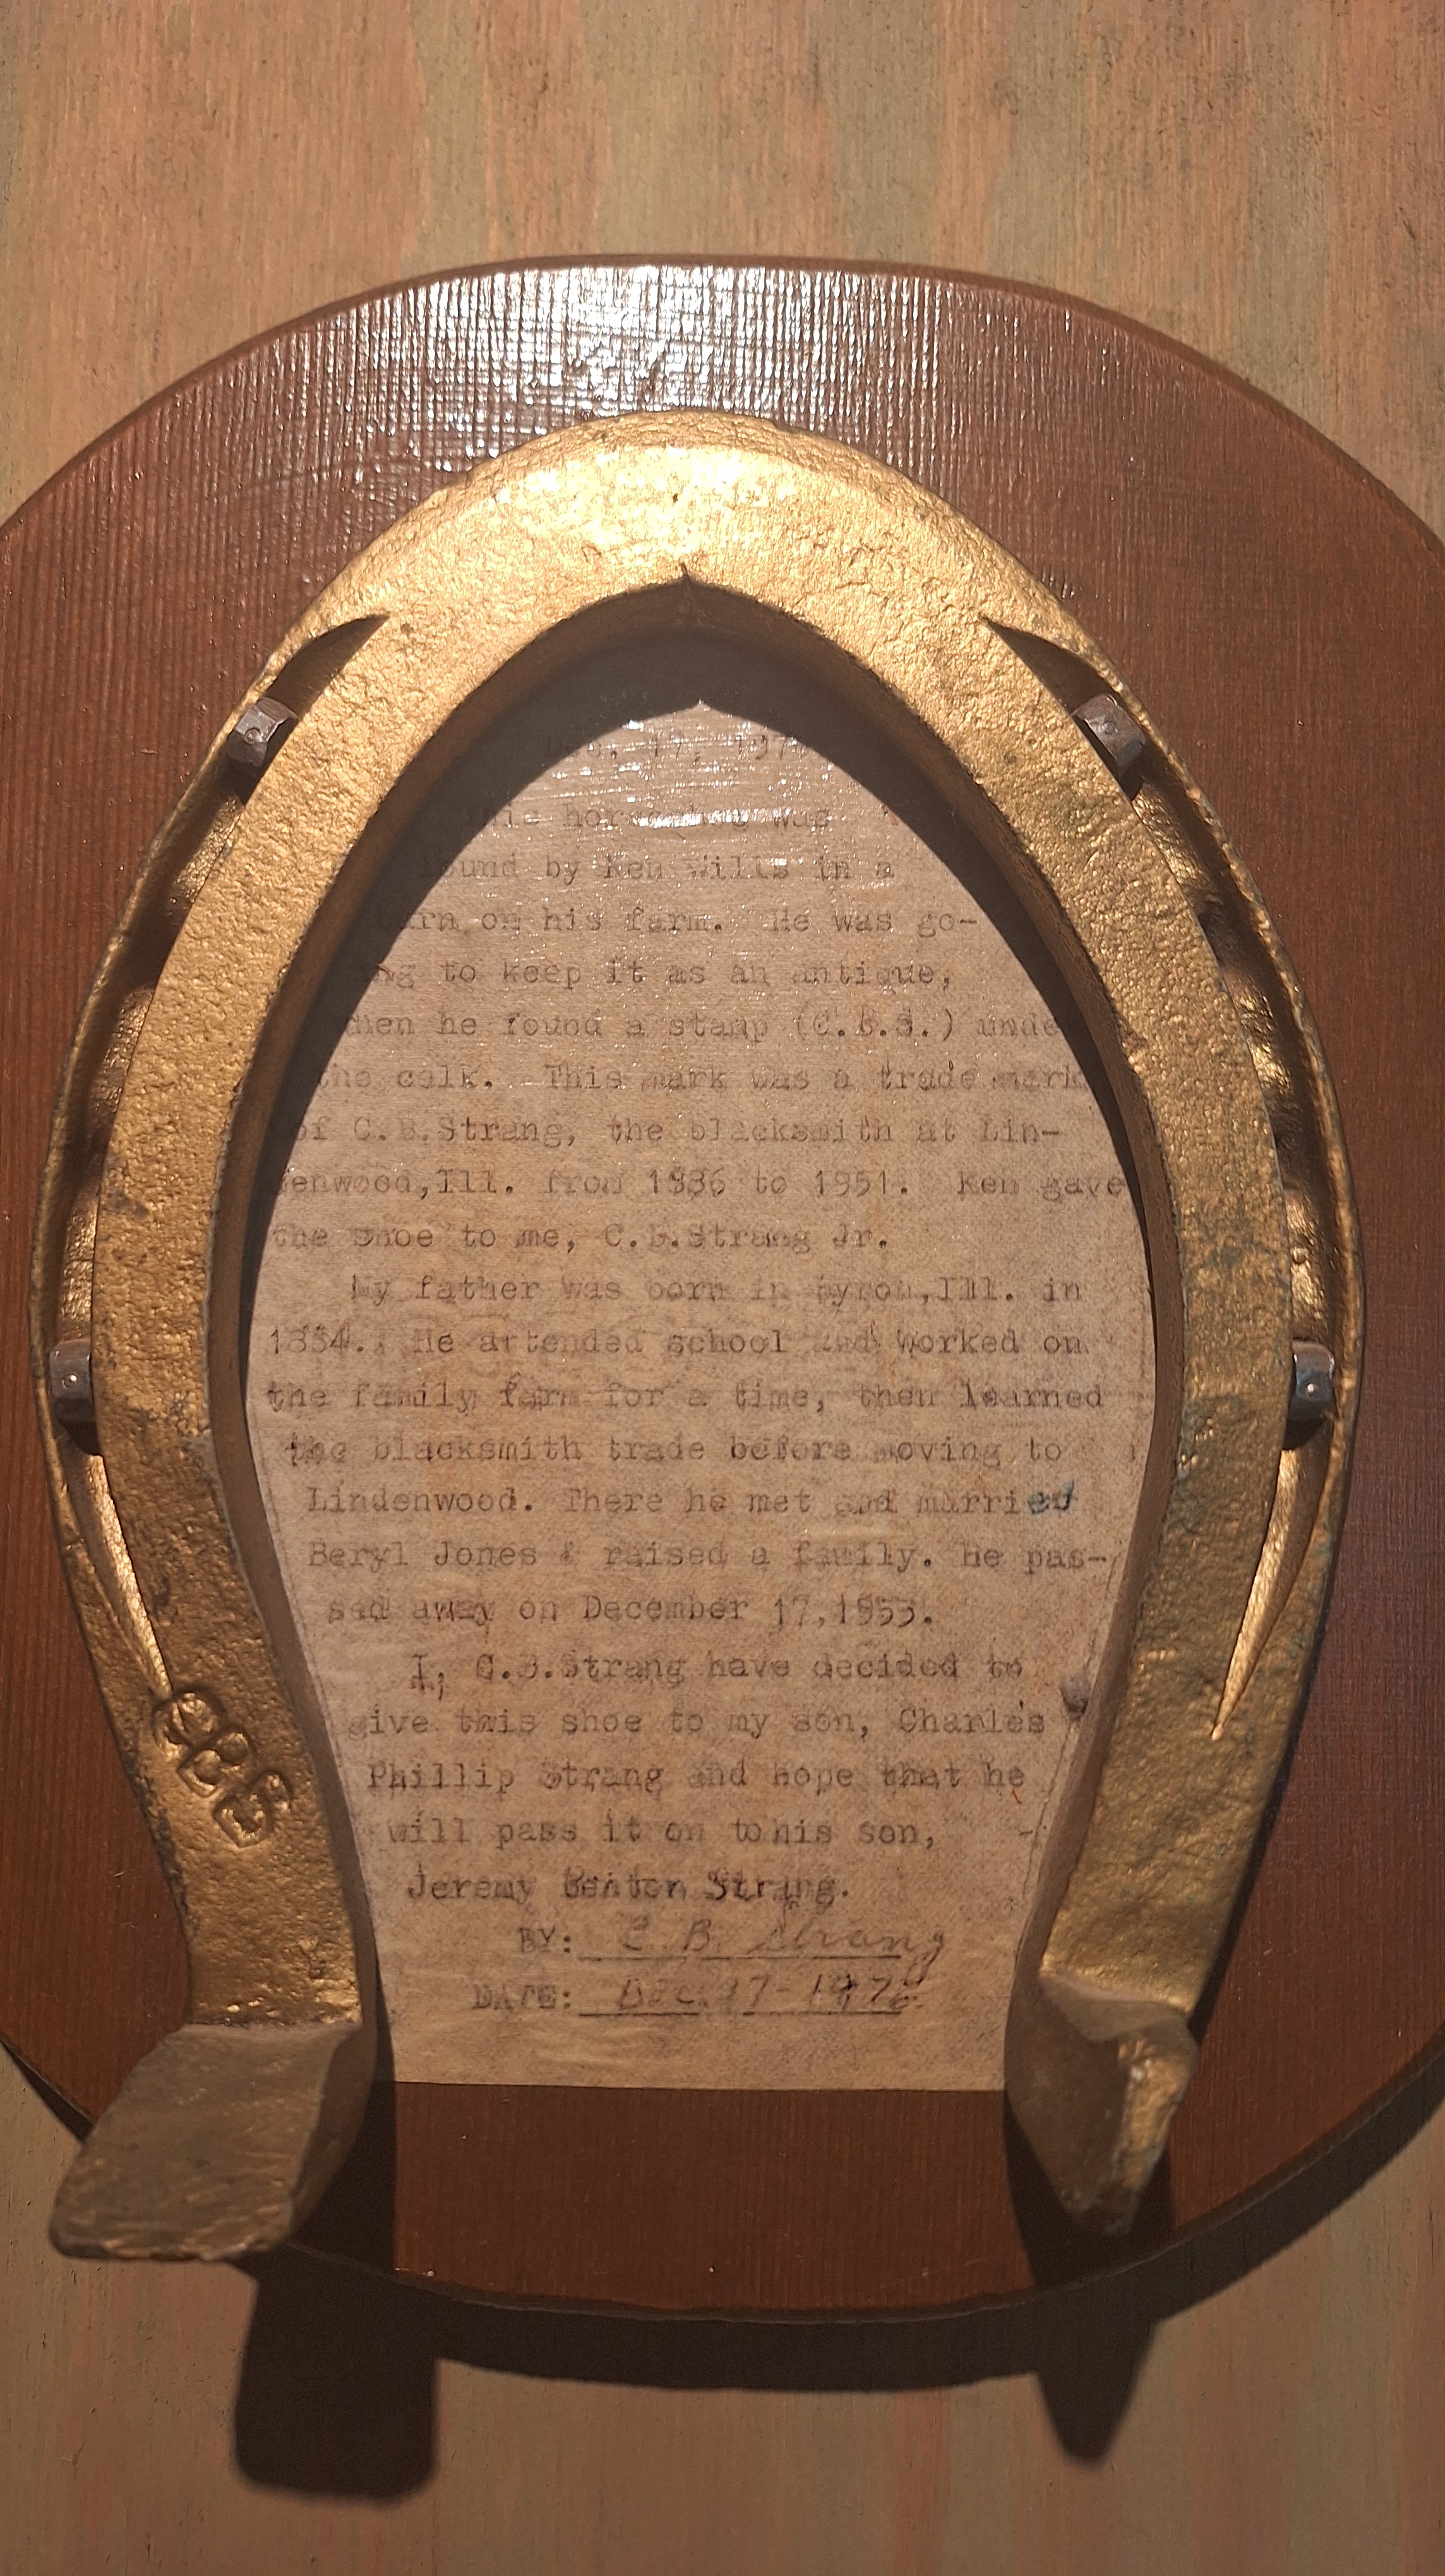 Dec. 17, 197
this horseshoe was
found by Ken Wills in a
barn on his farm. He was go-
ing to keep it as an antique,
then he found a stamp (C.B.S.) unde
the calk. This mark was a trade mark
of C.B.Strang, the blacksmith at Lin-
denwood,Ill. from to 1951. Ken gave
the shoe to me, C.B.Strang Jr.
My father was born in Byron,Ill. in
He attended school and worked on
the family farm for a time, then learned
the blacksmith trade before moving to
Lindenwood. There he met and married
Beryl Jones & raised a family. He pas-
sed away on December 17,1953.
I, C.B.Strang have decided to
give this shoe to my son, Charles
Phillip Strang and hope that he
will pass it on to his son,
Jeremy Benton Strang.
BY: C B Strang
DATE: Dec. 17-1976
CBS